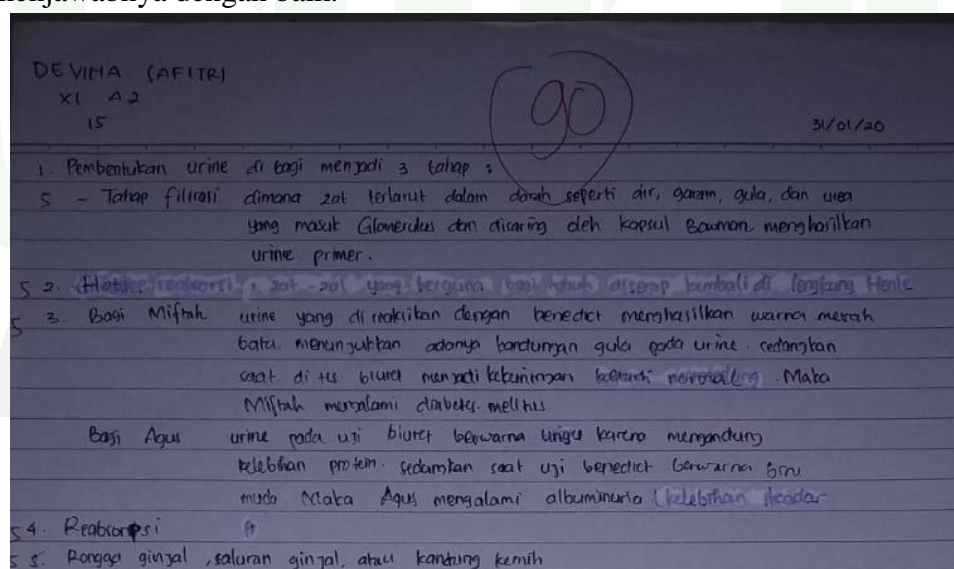 menjawabnya dengan baik.
DEVINA SAFITRI
XI A2
15
90
31/01/20
1. Pembentukan urine di bagi menjadi 3 tahap :
5 - Tahap filtrasi dimana zat terlarut dalam darah seperti air, garam, gula, dan urea
yang masuk Glomerulus dan disaring oleh kapsul Bowman menghasilkan
urine primer.
5 2. zat-zat yang berguna bagi tubuh diserap kembali di lengkung Henle
5 3. Bagi Miftah urine yang di reaksikan dengan benedict menghasilkan warna merah
bata menunjukkan adanya kandungan gula pada urine. sedangkan
saat di tes biuret menjadi kebeningan. Maka
Miftah mengalami diabetes melitus
Bagi Agus urine pada uji biuret berwarna ungu karena mengandung
kelebihan protein. sedangkan saat uji benedict berwarna biru
muda Maka Agus mengalami albuminuria (kelebihan kadar
5 4. Reabsorpsi
5 5. Rongga ginjal, saluran ginjal, atau kantung kemih